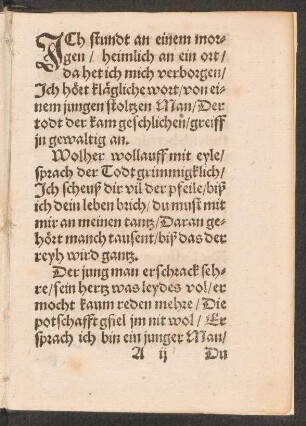 ICh stundt an einem mor-
gen / heimlich an ein ort /
da het ich mich verborgen /
Ich hört klägliche wort / von ei-
nem jungen stoltzen Man / Der
todt der kam geschlichen̄ / greiff
jn gewaltig an.
Wolher wollauff mit eyle /
sprach der Todt grimmigklich /
Ich scheuß dir vil der pfeile / biß
ich dein leben brich / du must mit
mir an meinen tantz / Daran ge-
hört manch tausent / biß das der
reyh wird gantz.
Der jung man erschrack seh-
re / sein hertz was leydes vol / er
mocht kaum reden mehre / Die
potschafft gfiel jm nit wol / Er
sprach ich bin ein junger Man /
A ij Du